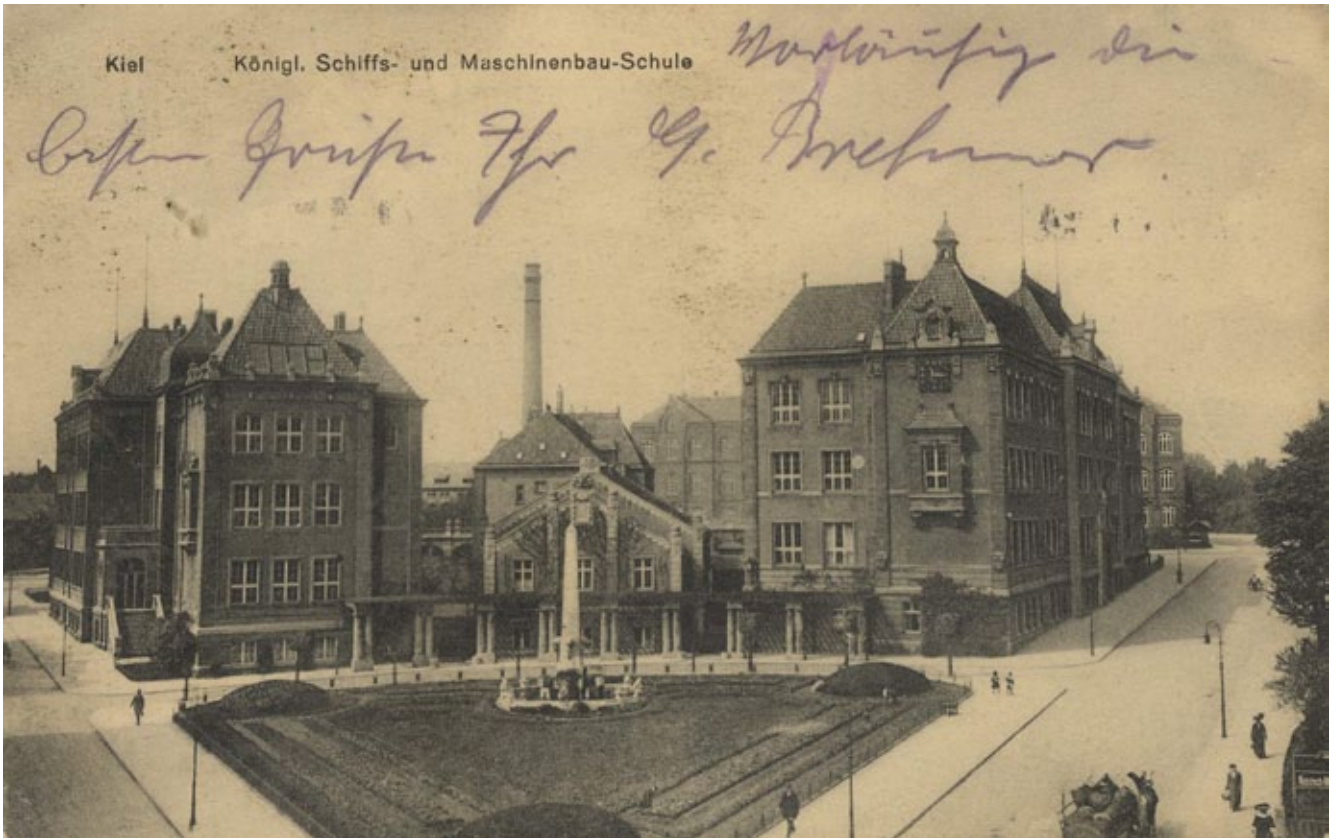 Kiel Königl. Schiffs- und Maschinenbau-Schule
Vorläufig die
besten Grüße Ihr G. Brehmer